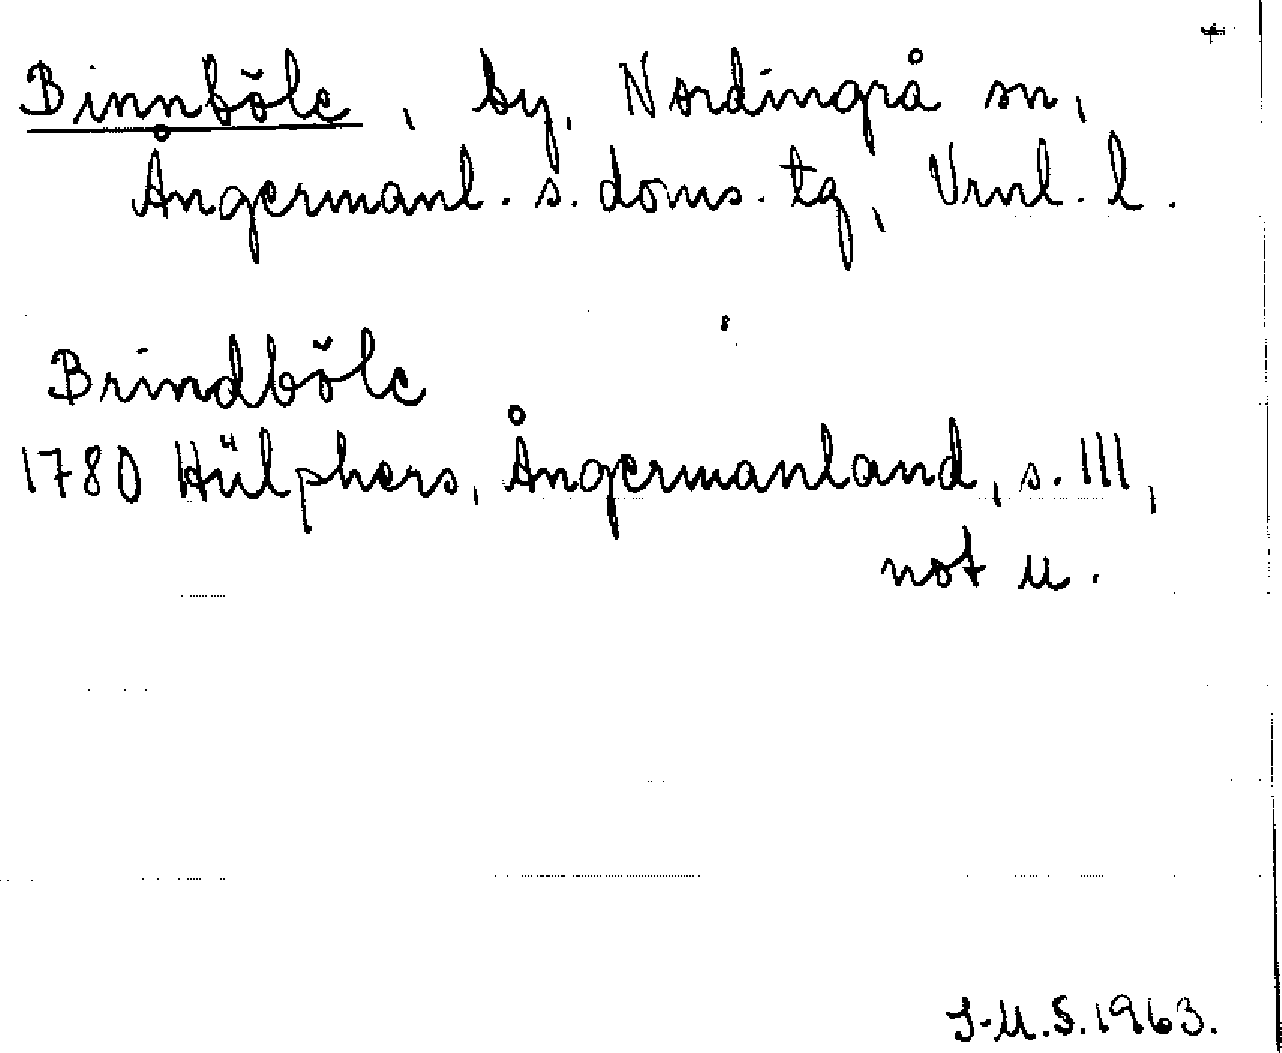 Binnböle, by, Nordingrå sn,
Ångermanl. s. doms. tg, Vrnl. l.
Brindböle
1780 Hülphers, Ångermanland, s. 111,
not u.
I-M.S. 1963.